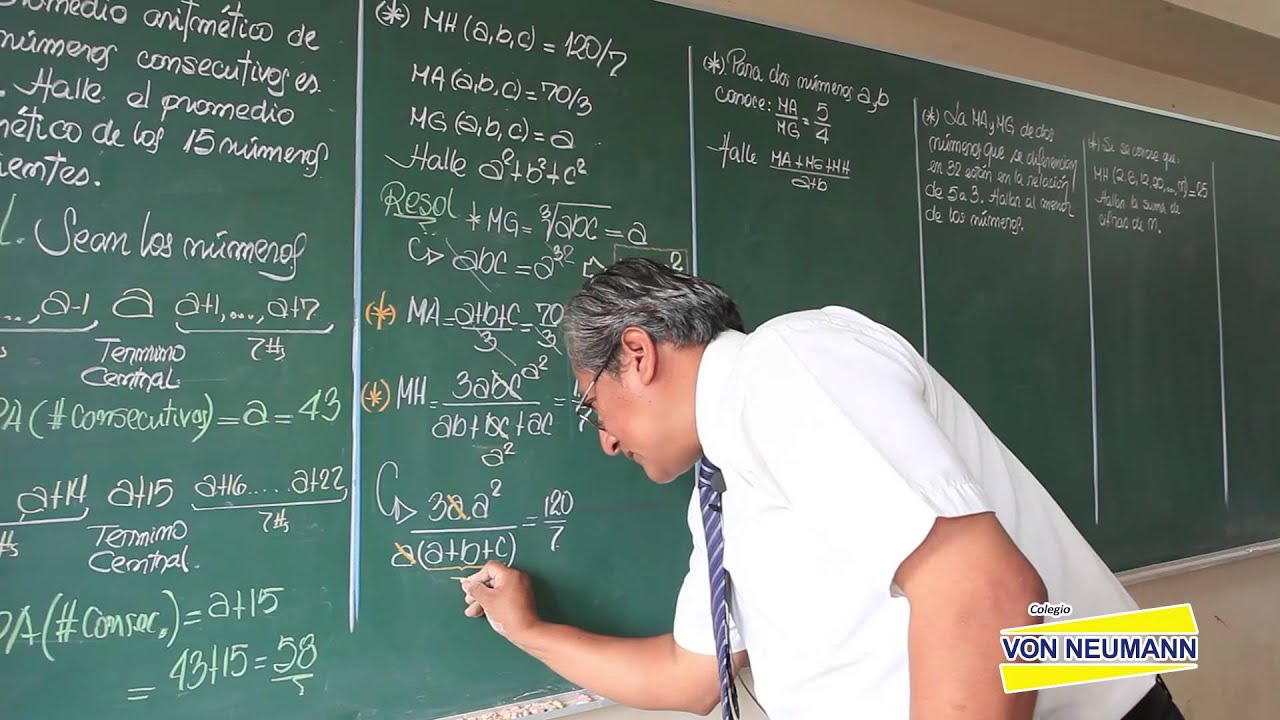 promedio aritmético de
números consecutivos es
. Halle el promedio
mético de los 15 números
ientes.
l. Sean los números
..., a-1 a a+1, ..., a+7
7#s
Termino
Central.
PA (#Consecutivos) = a = 43
a+14 a+15 a+16 ..... a+22
7#s
Termino
Central.
PA (#Consec.) = a+15
= 43+15 = 58
(*) MH (a,b,c) = 120/7
MA (a,b,c) = 70/3
MG (a,b,c) = a
Halle a²+b²+c²
Resol
* MG = ∛abc = a
abc = a³²
(*) MA = a+b+c/3 = 70/3
(*) MH = 3abc a²/ab+bc+ac =
a²
3a.a²/a(a+b+c) = 120/7
(*) Para dos números a,b
conoce: MA/MG = 5/4
Halle MA+MG+MH/a+b
(*) La MA y MG de dos
números que se diferencian
en 32 están en la relación
de 5 a 3. Hallar al menor
de los números.
(*) Si se conoce que:
MH (2, 6, 12, 20, ..., n) = 25
Hallar la suma de
cifras de n.
Colegio
VON NEUMANN